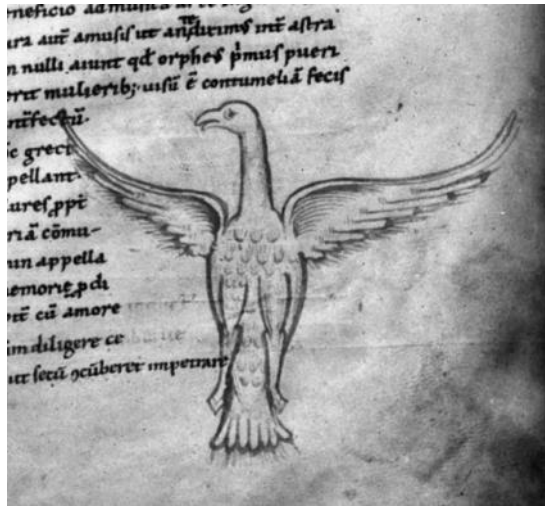 neficio ad musica
ura aut̄ amusis ut antiq̄rims int̄ astra
n nulli aiunt qd̄ orpheꝰ p̍mus pueri
erit mulierib; uisū ē contumeliā fecis
int̄fectū.
ic greci
pellant.
lures, ꝓpt̄
riā cōmu-
un appella
emorie ꝓdi
ptē cū amore
im diligere ce
ut secū ꝯcūberet impetrare